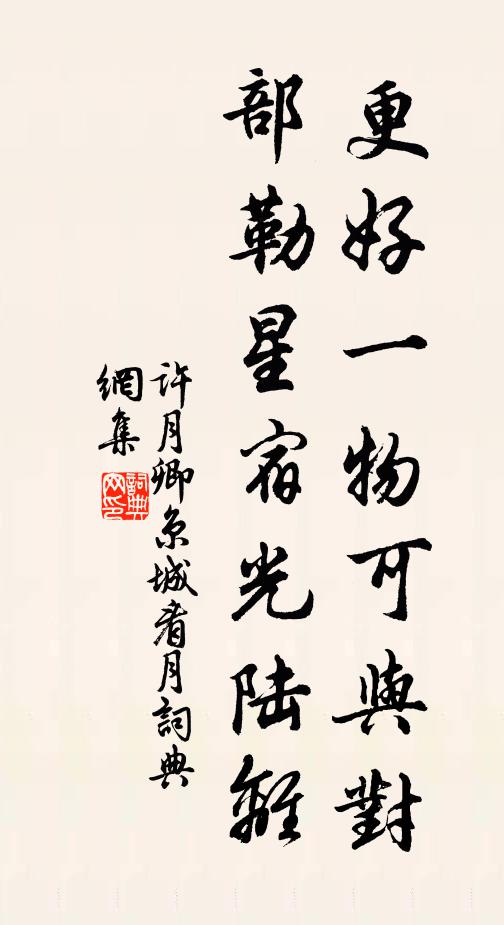 更好一物可與對
部勒星宿光陆離
許月卿京城看月詞典
網集
詞典网印